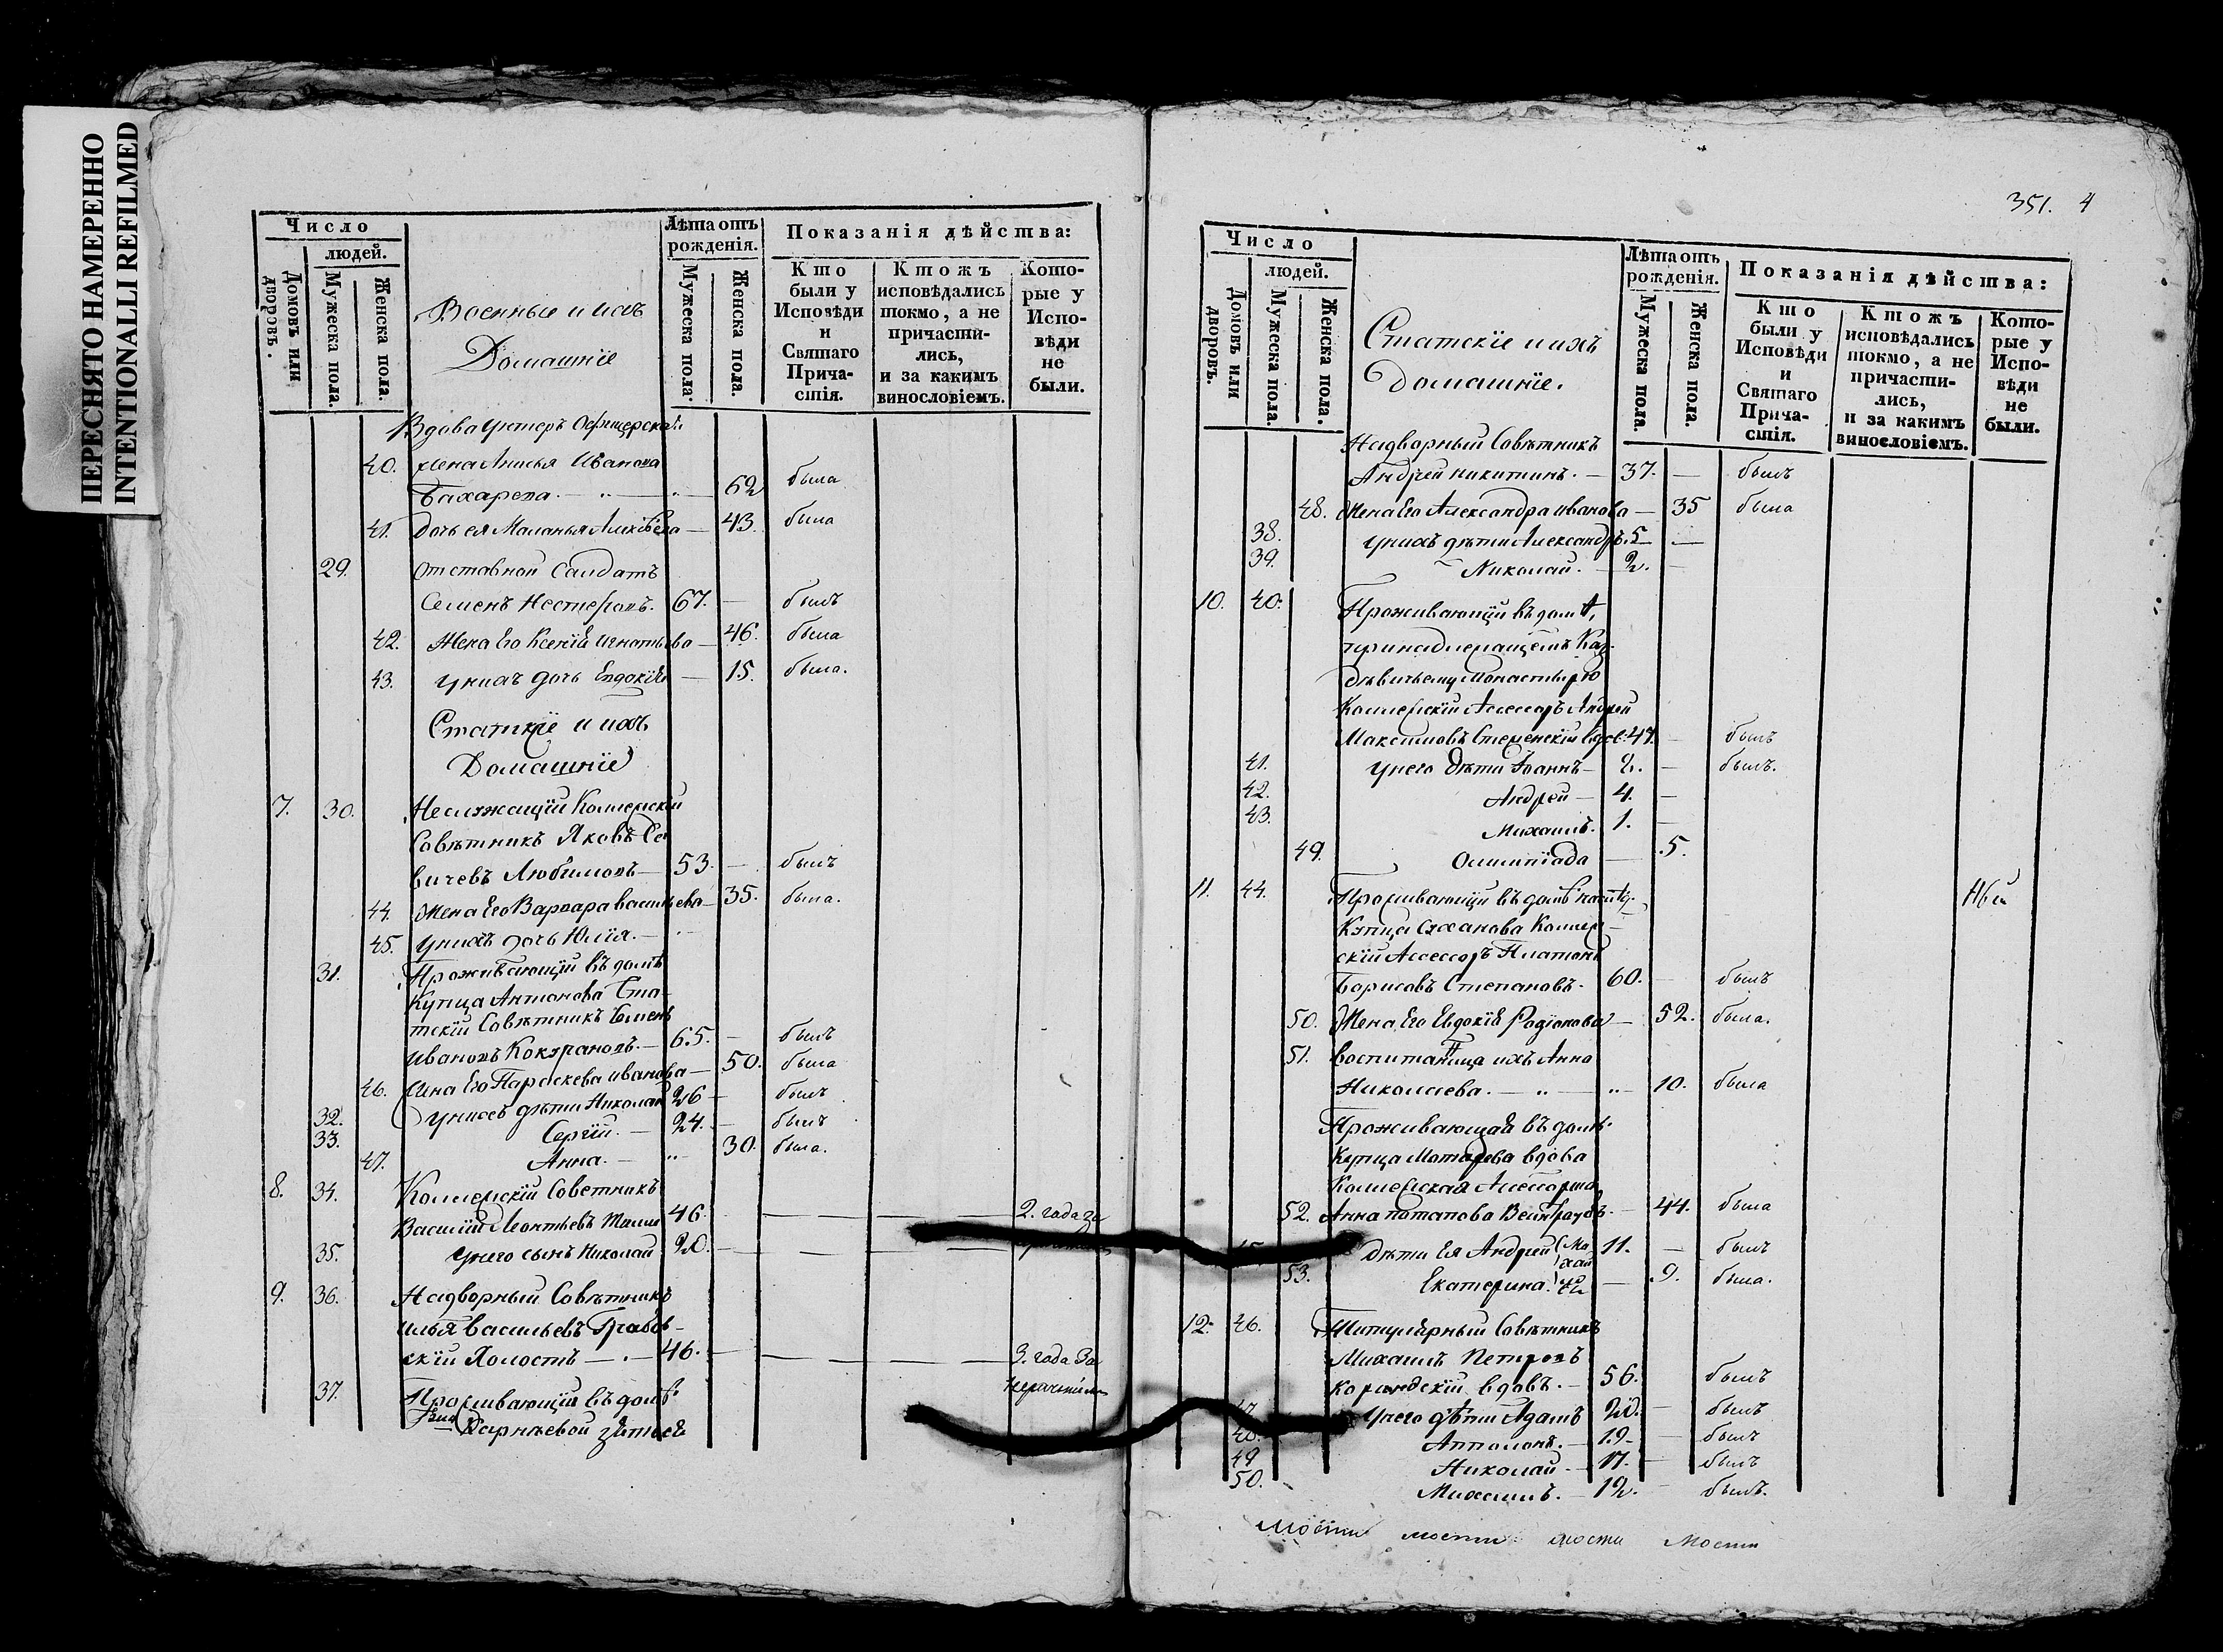 ПЕРЕСНЯТО НАМЕРЕННО
INTENTIONALLI REFILMED
Число
людей.
Домовъ или дворовъ.
Мужеска пола.
Женска пола.
Военные и ихъ
Домашнїе
Лѣта отъ рожденія.
Мужеска пола.
Женска пола.
Показанія дѣйства:
Кто были у Исповѣди и Святаго Причастія.
Ктожъ исповѣдались токмо, а не причастились, и за какимъ винословіемъ.
Которые у Исповѣди не были.
Вдова Унтеръ Офицерская
40. жена Анисья Иванова
Бахарева. — 62 была
41. дочь ея Маланья — 43. была
29. Отставной Салдатъ
Семенъ Нестеровъ. 67. — былъ
42. Жена Его Ксенїѣ Игнатьева — 46. была
43. у нихъ дочь Евдокїѣ — 15. была.
Статскїе и ихъ
Домашнїе
7. 30. Неслужащїй Коллежскїй
Совѣтникъ Яковъ Са
вичевъ Любимовъ — 53. — былъ
44. Жена Его Варвара Васильева — 35. была.
45. у нихъ дочь Юлїя. —
31. Проживающїй въ домѣ
Купца Антонова Ста
тскїй Совѣтникъ
Ивановъ — 65. — былъ
46. Жена Его Параскева Иванова — 50. была
32. у нихъ дѣти Николай 26 — былъ
33. Сергїй. — 24. — былъ
47. Анна. — 30. была.
8. 34. Коллежскїй Советникъ
Василїй Леонтьевъ 46. — — — 2. года за
35. у него сынъ Николай 20. — — —
9. 36. Надворный Совѣтникъ
Илья Васильевъ Грабов-
скїй Холостъ — 46. — — — 3. года за
37. Проживающїй въ домѣ
351. 4
Число
людей.
Домовъ или дворовъ.
Мужеска пола.
Женска пола.
Статскїе и ихъ
Домашнїе.
Лѣта отъ рожденія.
Мужеска пола.
Женска пола.
Показанія дѣйства:
Кто были у Исповѣди и Святаго Причастія.
Ктожъ исповѣдались токмо, а не причастились, и за какимъ винословіемъ.
Которые у Исповѣди не были.
Надворный Совѣтникъ
Андрей Никитинъ. — 37. — былъ
48. Жена Его Александра Иванова — 35 была
38. у нихъ дѣти Александръ. 5 —
39. Николай. — 2. —
10. 40. Проживающїй въ домѣ,
принадлежащемъ Каз.
Дѣвичьему Монастырю
Коллежскїй Ассессоръ Андрей
Максимовъ вдов. 47. — былъ
41. у него дѣти Іоаннъ — 2. — былъ.
42. Андрей — 4. —
43. Михаилъ. 1. —
49. Олимпїада — 5.
11. 44. Проживающїй въ домѣ
Купца Суханова Коллеж-
скїй Ассессоръ Платонъ
Борисовъ Степановъ. 60. — былъ
50. Жена Его Евдокїѣ Родїонова — 52. была.
51. воспитаница ихъ Анна
Николаева. — 10. была
Проживающая въ домѣ
Купца вдова
Коллежская Ассессорша
52. Анна Потапова — 44. была
дѣти Ея Андрей 11. — былъ
53. Екатерина — 9. была.
12. 46. Титулярный Совѣтникъ
Михаилъ Петровъ
вдовъ. — 56. былъ
47. у него дѣти Адамъ 20. — былъ
48. Апполонъ. — 19 — былъ
49 Николай — 17. — былъ
50. Михаилъ. — 12. — былъ.
мости мости мости Мости